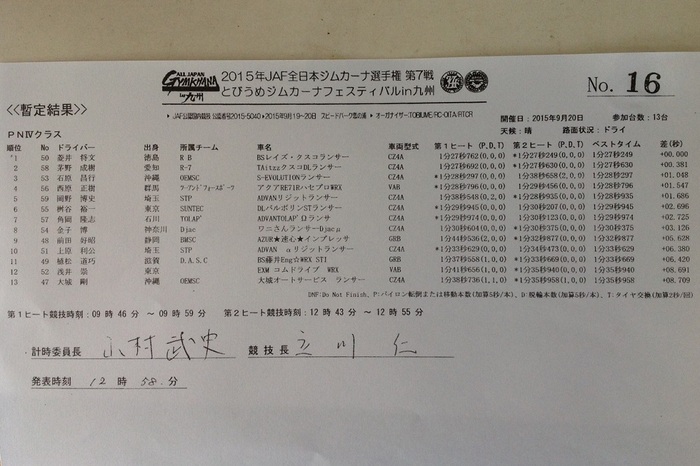 ALL JAPAN GYMKHANA in 九州
2015年JAF全日本ジムカーナ選手権 第7戦
とびうめジムカーナフェスティバルin九州
No. 16
▶JAF公認国内競技 公認番号2015-5040 ▶2015年9月19~20日 スピードパーク恋の浦 ▶オーガナイザー:TOBIUME・RC-OITA・FTCR
<<暫定結果>>
開催日:2015年9月20日 参加台数:13台
天候:晴 路面状況:ドライ
PNⅣクラス
順位 No ドライバー 出身 所属チーム 車名 車両型式 第1ヒート(P,D,T) 第2ヒート(P,D,T) ベストタイム 差(秒)
*1 50 菱井 将文 徳島 RB BSレイズ・クスコランサー CZ4A 1分27秒762(0,0,0) *1分27秒249(0,0,0) 1分27秒249 +00.000
2 58 茅野 成樹 愛知 R-7 TAitzzクスコDLランサー CZ4A 1分27秒692(0,0,0) *1分27秒630(0,0,0) 1分27秒630 +00.381
3 53 石原 昌行 沖縄 OEMSC S-EVOLUTIONランサー CZ4A *1分28秒297(0,0,0) 1分38秒658(2,0,0) 1分28秒297 +01.048
4 56 西原 正樹 群馬 アクアRE71RハセプロWRX VAB *1分28秒796(0,0,0) 1分29秒456(0,0,0) 1分28秒796 +01.547
5 59 岡野 博史 埼玉 STP ADVANリジットランサー CZ4A 1分38秒548(2,0,0) *1分28秒935(0,0,0) 1分28秒935 +01.686
6 55 桝谷 裕一 東京 SUNTEC DLバルボリンSTランサー CZ4A *1分29秒945(0,0,0) 1分30秒016(0,0,0) 1分29秒945 +02.696
7 57 角岡 隆志 石川 TOLAP ADVANTOLAPΩランサー CZ4A *1分29秒974(0,0,0) 1分30秒123(0,0,0) 1分29秒974 +02.725
8 54 金子 博 神奈川 Djac ワニさんランサーDjacμ CZ4A 1分30秒604(0,0,0) *1分30秒375(0,0,0) 1分30秒375 +03.126
9 48 前田 好昭 静岡 BMSC AZUR★速心★インプレッサ GRB 1分44秒536(2,0,0) *1分32秒877(0,0,0) 1分32秒877 +05.628
10 51 上原 利公 埼玉 STP ADVAN αリジットランサー CZ4A *1分33秒629(0,0,0) 1分33秒669(0,0,0) 1分33秒629 +06.380
11 49 植松 道巧 滋賀 D.A.S.C BS藤井Eng☆WRX STI GRB 1分37秒558(1,0,0) *1分33秒779(0,0,0) 1分33秒779 +06.530
12 52 浅井 崇 東京 EXM コムドライブ WRX VAB 1分41秒656(1,0,0) *1分35秒940(0,0,0) 1分35秒940 +08.691
13 47 大城 剛 沖縄 OEMSC 大城オートサービス ランサー CZ4A 1分38秒736(1,1,0) *1分35秒958(0,0,0) 1分35秒958 +08.709
DNF:Do Not Finish、P:パイロン転倒または移動本数(加算5秒/本)、D:脱輪本数(加算5秒/本)、T:タイヤ交換(加算2秒/回)
第1ヒート競技時刻:09時46分 ~ 09時59分 第2ヒート競技時刻:12時43分 ~ 12時55分
計時委員長 山村武史 競技長 立川仁
発表時刻 12時58分